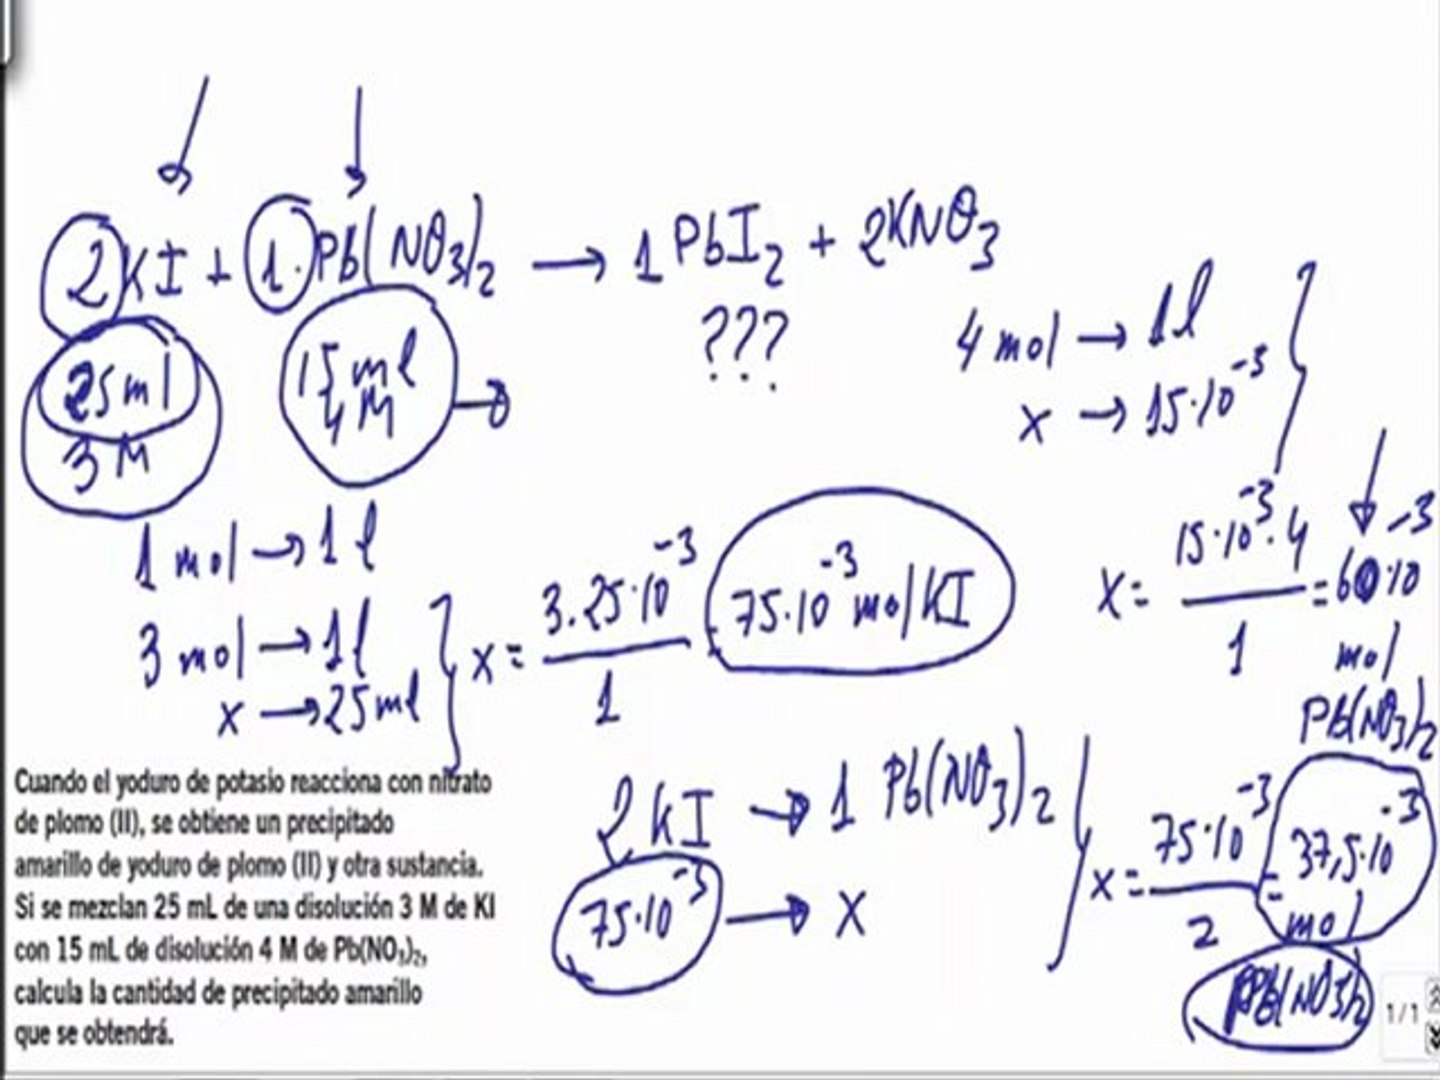 2KI + 1·Pb(NO3)2 → 1 PbI2 + 2KNO3
25ml
3 M
15 ml
4 M
???
4 mol → 1l
x → 15·10^-3
x = 15·10^-3·4 / 1 = 60·10^-3
mol
Pb(NO3)2
1 mol → 1 l
3 mol → 1l
x → 25 ml
x = 3·25·10^-3 / 1 = 75·10^-3 mol KI
2 KI → 1 Pb(NO3)2
75·10^-3 → x
x = 75·10^-3 / 2 = 37,5·10^-3
mol
Pb(NO3)2
Cuando el yoduro de potasio reacciona con nitrato
de plomo (II), se obtiene un precipitado
amarillo de yoduro de plomo (II) y otra sustancia.
Si se mezclan 25 mL de una disolución 3 M de KI
con 15 mL de disolución 4 M de Pb(NO3)2,
calcula la cantidad de precipitado amarillo
que se obtendrá.
1/1